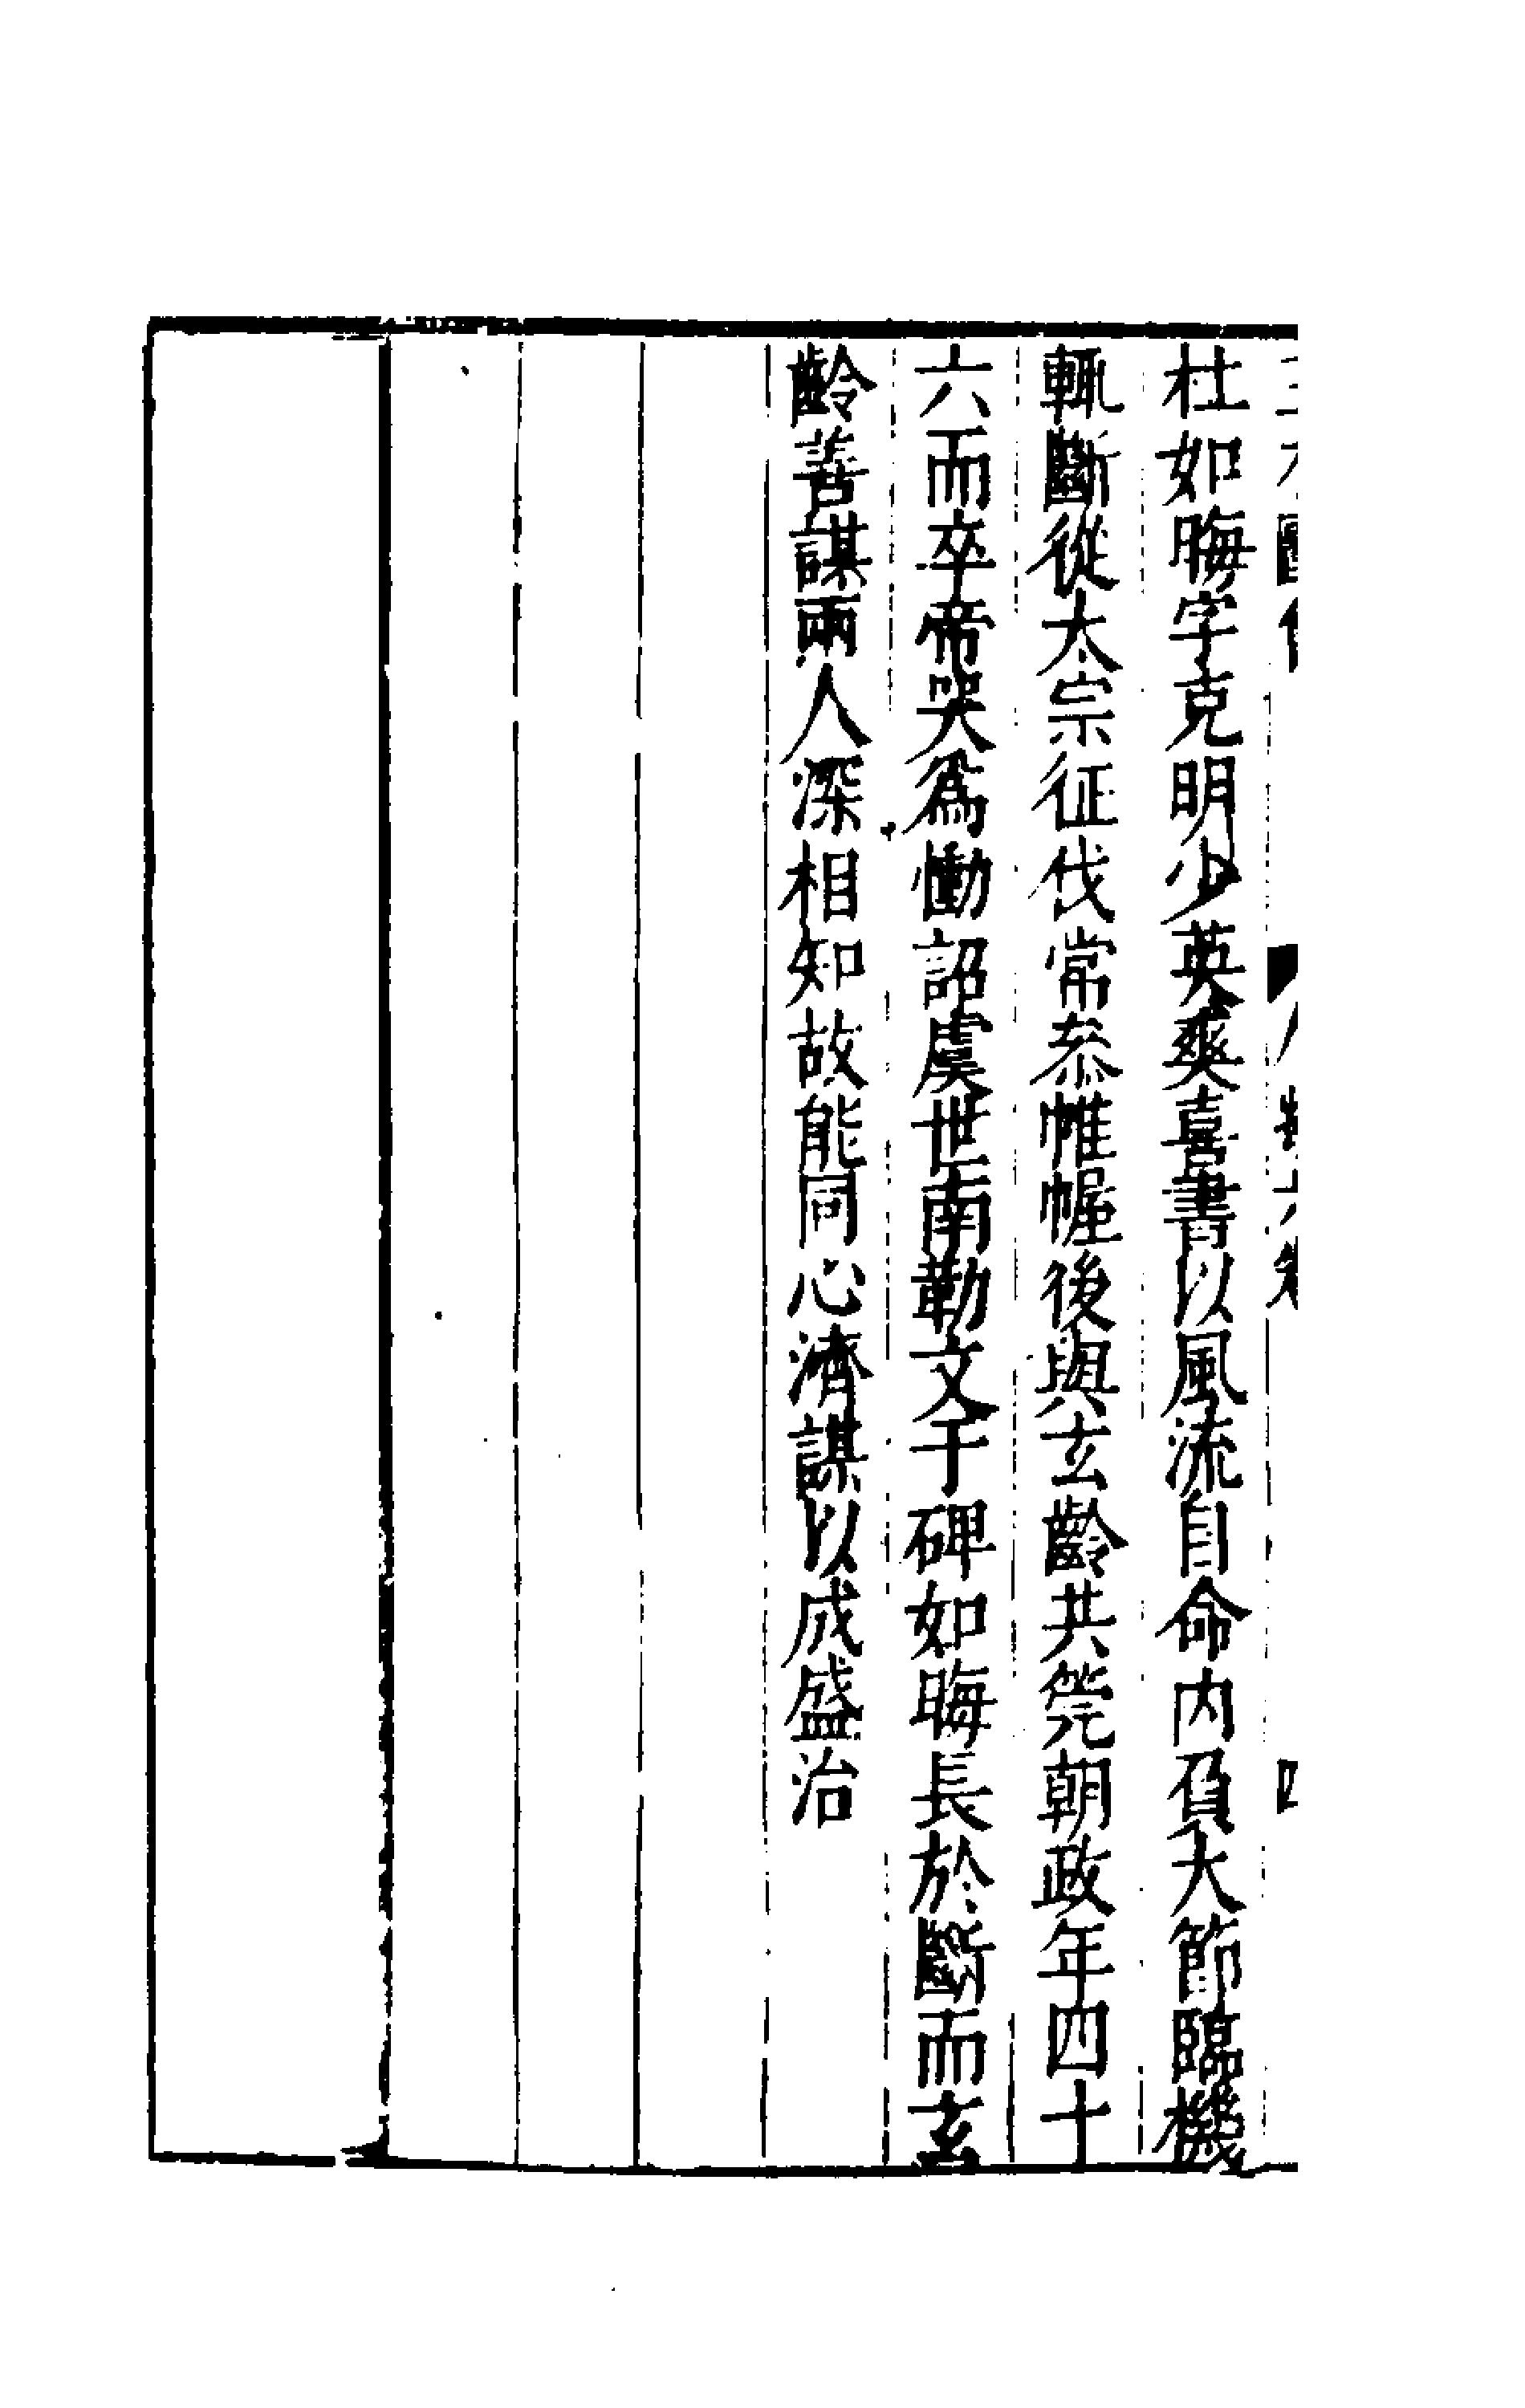 杜如晦字克明少英爽喜書以風流自命内負大節臨機
輒斷從太宗征伐常叅帷幄後與玄齡共筦朝政年四十
六而卒帝哭爲慟詔虞世南勒文于碑如晦長於斷而玄
齡善謀兩人深相知故能同心濟謀以成盛治